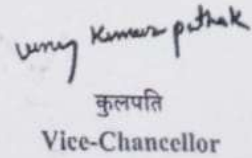 Kumar pathak
कुलपति
Vice-Chancellor